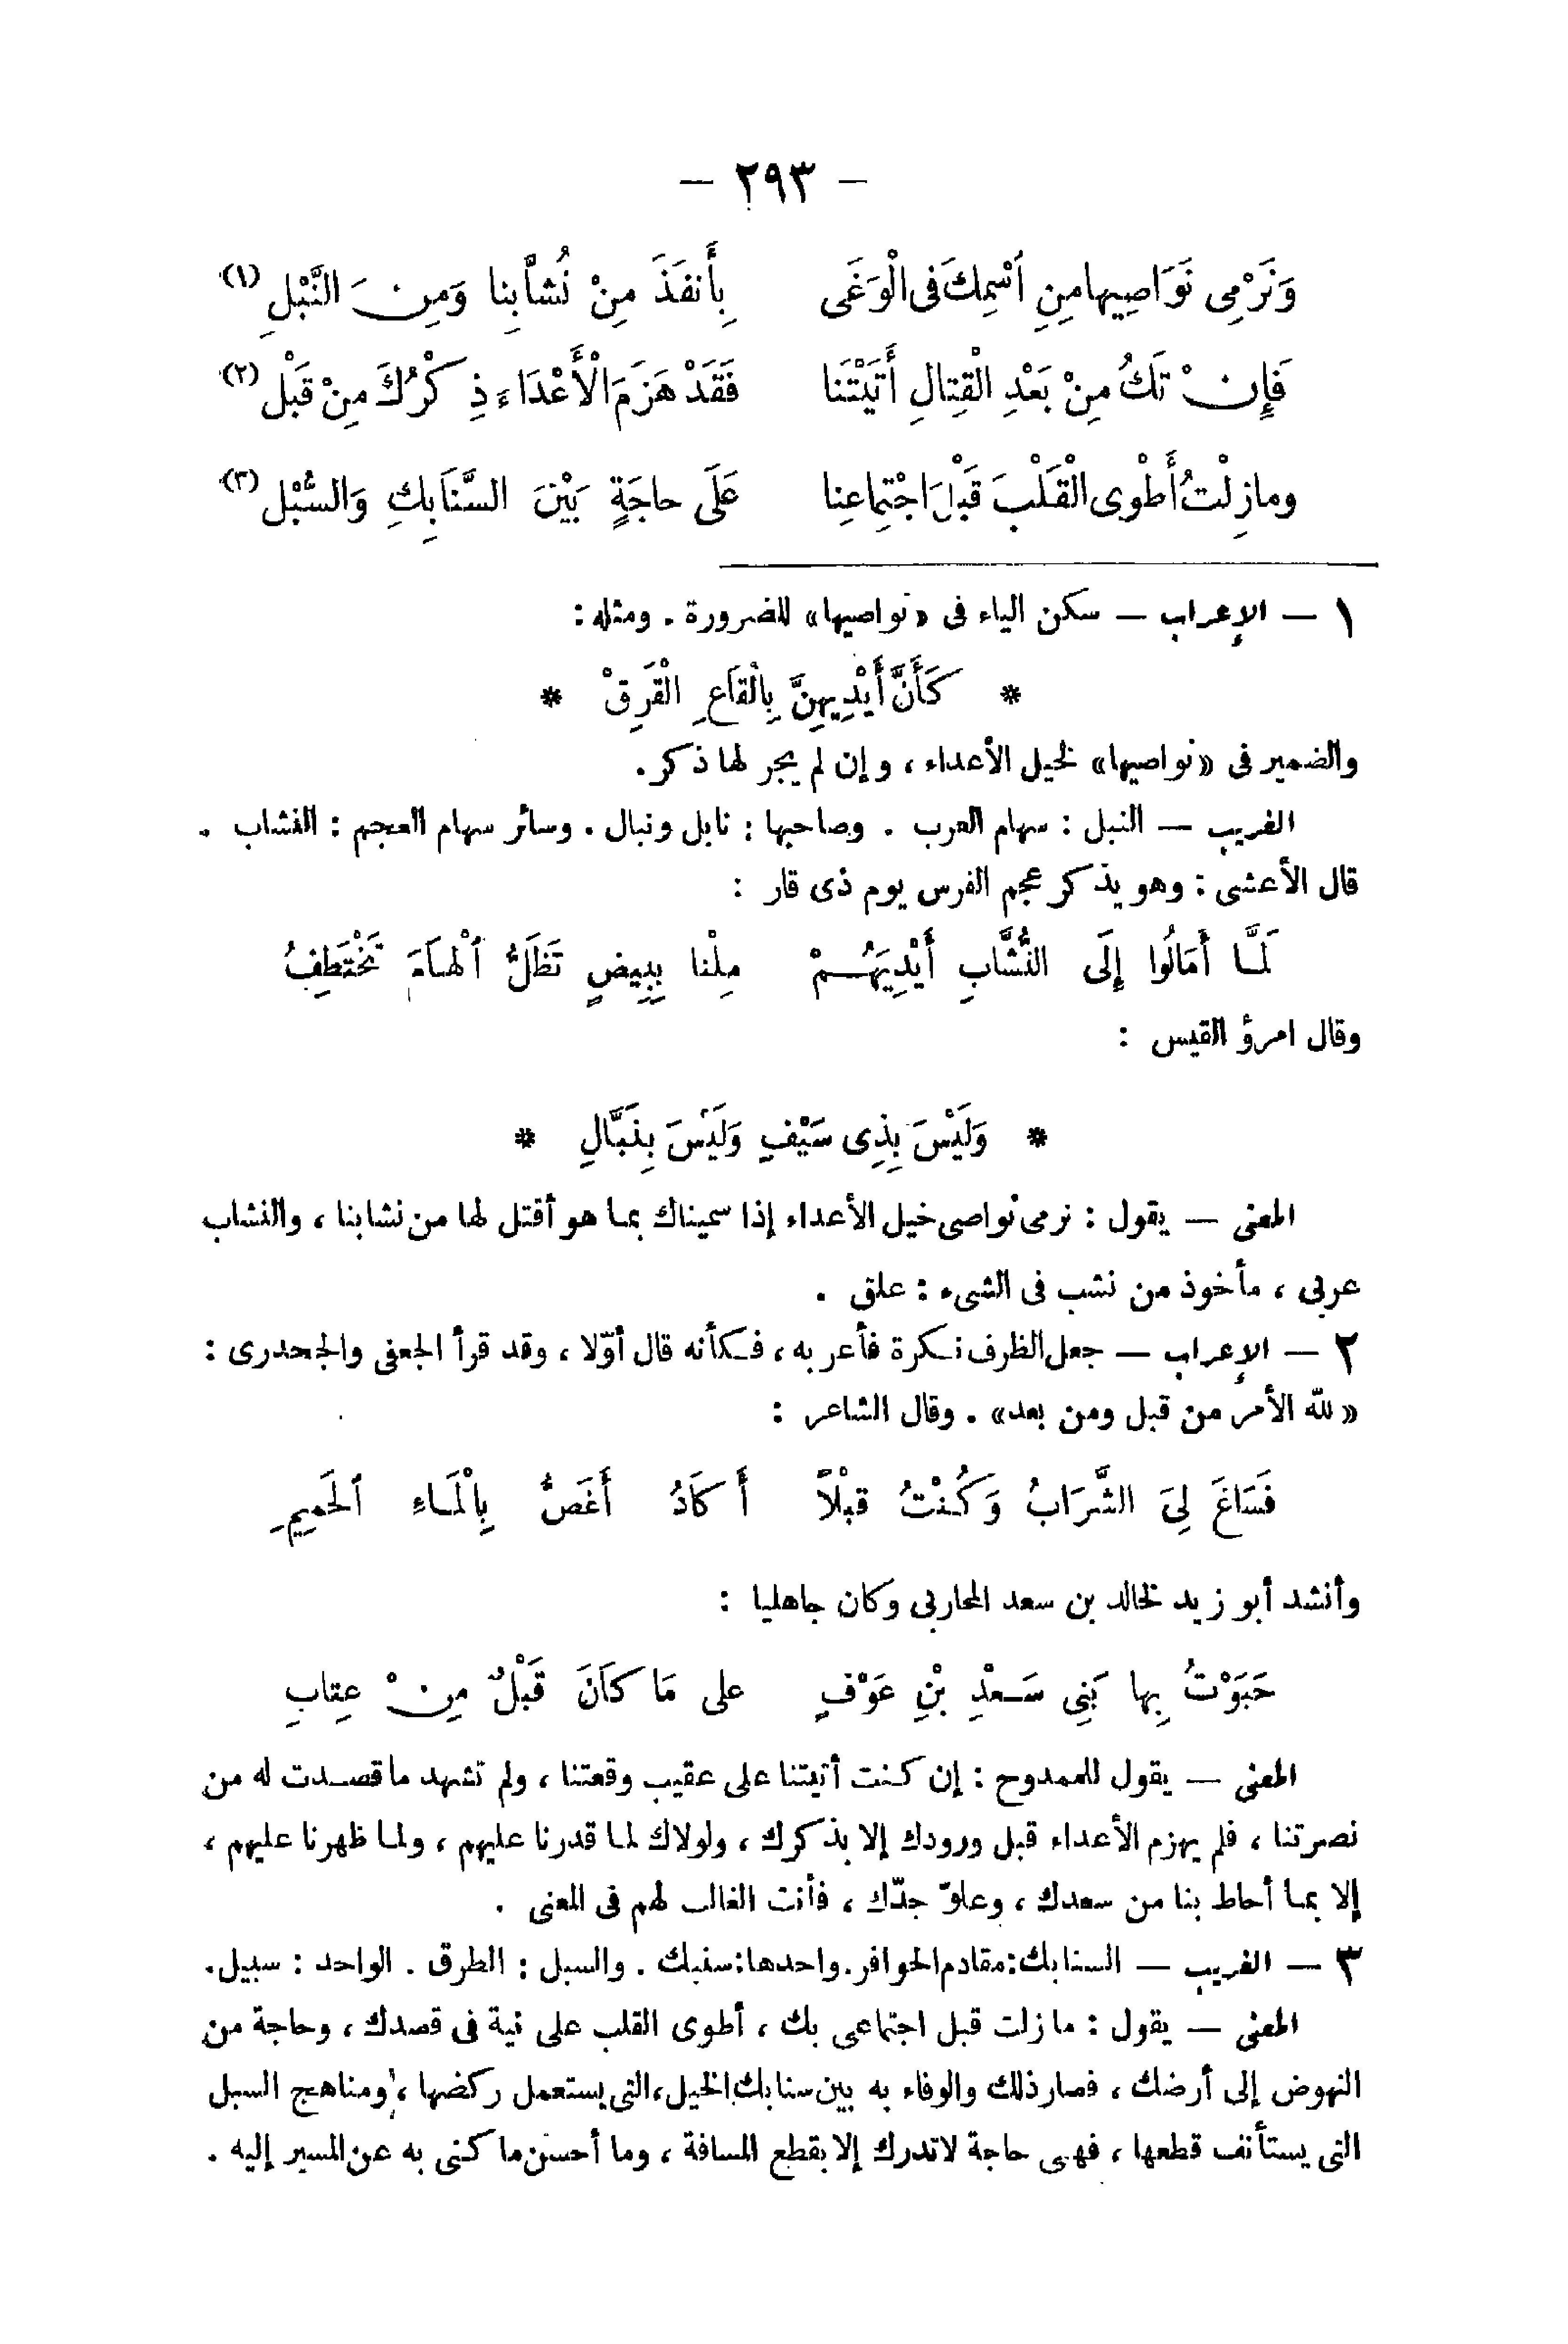 — ٢٩٣ —
وَنَرْمِى نَوَاصِيها مِنِ اُسْمِكَ فى الْوَغَى بِأَنفَذَ مِنْ نُشاَّبِنا وَمِنَ النَّبْلِ (١)
فَإِنْ تَكُ مِنْ بَعْدِ الْقِتالِ أَتَيْتَنَا فَقَدْ هَزَمَ الْأَعْدَاءَ ذِكْرُكَ مِنْ قَبْلِ (٢)
وما زِلْتُ أَطْوِى الْقَلْبَ قَبْلَ اجْتِماعِنا عَلَى حاجَةٍ بَيْنَ السَّنَابِكِ وَالسُّبْلِ (٣)
١ — الإعراب — سكن الياء فى «نواصيها» للضرورة . ومثله :
* كَأَنَّ أَيْدِيهِنَّ بِالْقاَعِ الْقَرِقْ *
والضمير فى «نواصيها» لخيل الأعداء ، وإن لم يجر لها ذكر .
الغريب — النبل : سهام العرب . وصاحبها : نابل ونبال . وسائر سهام العجم : النشاب .
قال الأعشى : وهو يذكر عجم الفرس يوم ذى قار :
لَمَّا أَمَالُوا إِلَى النُّشَّابِ أَيْدِيَهُمْ مِلْنا بِبِيضٍ تَظَلُّ ٱلْهَامَ تَخْتَطِفُ
وقال امرؤ القيس :
* وَلَيْسَ بِذِى سَيْفٍ وَلَيْسَ بِنَبَّالِ *
المعنى — يقول : نرمى نواصى خيل الأعداء إذا سميناك بما هو أقتل لها من نشابنا ، والنشاب
عربى ، مأخوذ من نشب فى الشىء : علق .
٢ — الإعراب — جعل الظرف نكرة فأعربه ، فكأنه قال أوّلا ، وقد قرأ الجعفى والجحدرى :
«لله الأمر من قبل ومن بعد» . وقال الشاعر :
فَسَاغَ لِىَ الشَّرَابُ وَكُنْتُ قبْلاً أَكَادُ أَغَصُّ بِالْمَاءِ ٱلحَمِيمِ
وأنشد أبو زيد لخالد بن سعد المحاربى وكان جاهليا :
حَبَوْتُ بِها بَنِى سَعْدِ بْنِ عَوْفٍ على مَا كاَنَ قَبْلٌ مِنْ عِتابِ
المعنى — يقول للممدوح : إن كنت أتيتنا على عقيب وقعتنا ، ولم تشهد ما قصدت له من
نصرتنا ، فلم يهزم الأعداء قبل ورودك إلا بذكرك ، ولولاك لما قدرنا عليهم ، ولما ظهرنا عليهم ،
إلا بما أحاط بنا من سعدك ، وعلوّ جدّك ، فأنت الغالب لهم فى المعنى .
٣ — الغريب — السنابك : مقادم الحوافر . واحدها : سنبك . والسبل : الطرق . الواحد : سبيل .
المعنى — يقول : ما زلت قبل اجتماعى بك ، أطوى القلب على نية فى قصدك ، وحاجة من
النهوض إلى أرضك ، فصار ذلك والوفاء به بين سنابك الخيل ، التى يستعمل ركضها ، ومناهج السبل
التى يستأنف قطعها ، فهى حاجة لا تدرك إلا بقطع المسافة ، وما أحسن ما كنى به عن المسير إليه .